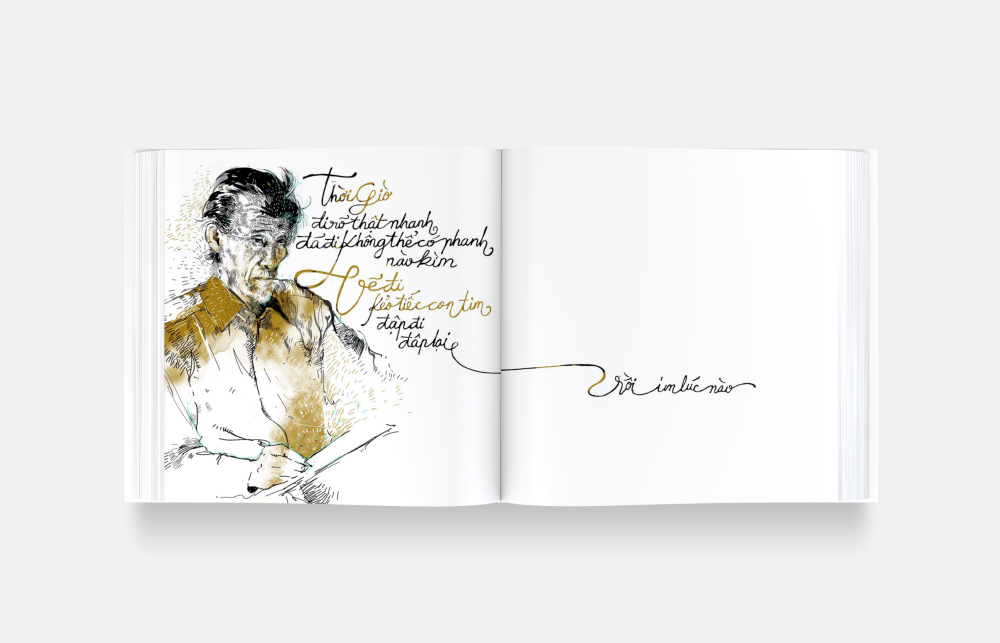 Thời Giờ
đi rõ thật nhanh
đã đi không thể có phanh
nào kìm
Vẽ đi
kẻo tiếc con tim
đập đi
đập lại
rồi im lúc nào